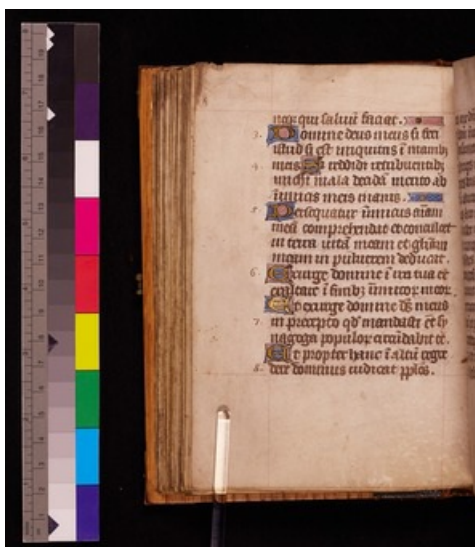 qui saluū faciat.
3. Domine deus meus si feci
istud si est iniquitas ī manibꝫ
4. meis Si reddidi retribuentibꝫ
michi mala decidā merito ab
inimicis meis inanis.
5 Persequatur inimicus aīam
meā comprehendat et conculcet
in terra uitā meam et gl̄iam
meam in puluerem deducat.
6. Exurge domine ī ira tua et
exaltare ī finibꝫ inimicoꝝ meoꝝ
Et exurge domine dꝰ meus
7. in precepto qd̄ mandasti et sy
nagoga populoꝝ circūdabit te.
Et propter hanc ī altū regre
8. dere dominus iudicat pp̄los.